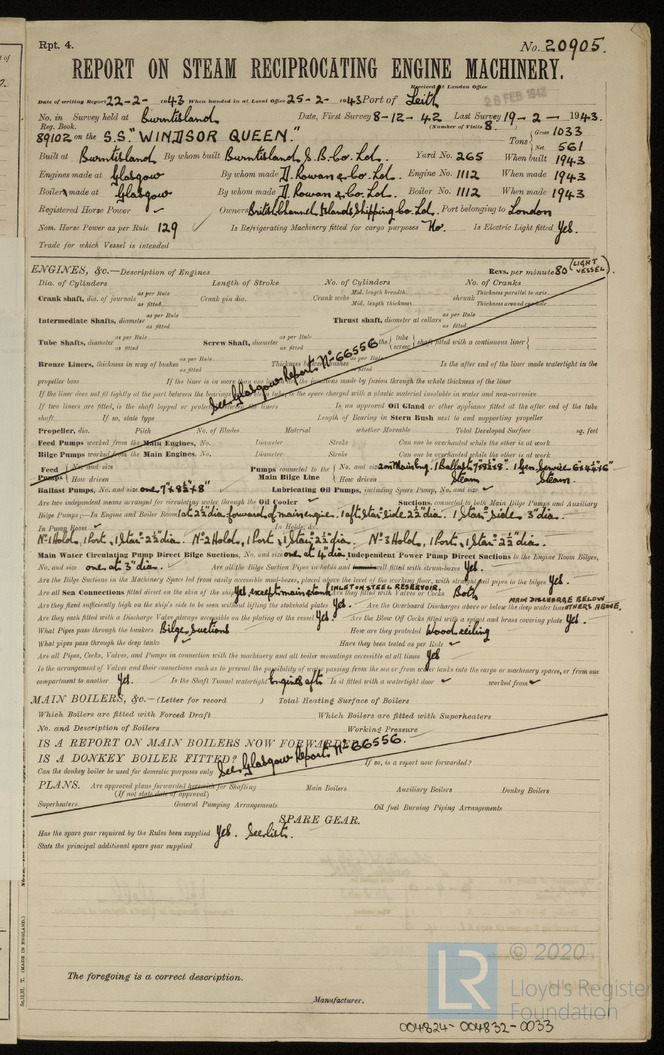 Rpt. 4.
No. 20905.
REPORT ON STEAM RECIPROCATING ENGINE MACHINERY.
Received at London Office
26 FEB 1943
Date of writing Report 22-2-1943 When handed in at Local Office 25-2-1943 Port of Leith
No. in Survey held at Burntisland Date, First Survey 8-12-42 Last Survey 19-2-1943.
Reg. Book. (Number of Visits 8.)
89102 on the S.S. "WINDSOR QUEEN." Tons Gross 1033
Net 561
Built at Burntisland By whom built Burntisland S.B. Co. Ld. Yard No. 265 When built 1943
Engines made at Glasgow By whom made D. Rowan & Co. Ld. Engine No. 1112 When made 1943
Boilers made at Glasgow By whom made D. Rowan & Co. Ld. Boiler No. 1112 When made 1943
Registered Horse Power Owners British Channel Islands Shipping Co. Ld. Port belonging to London
Nom. Horse Power as per Rule 129 Is Refrigerating Machinery fitted for cargo purposes No. Is Electric Light fitted Yes.
Trade for which Vessel is intended
ENGINES, &c.—Description of Engines Revs. per minute 80 (LIGHT VESSEL).
Dia. of Cylinders Length of Stroke No. of Cylinders No. of Cranks
Crank shaft, dia. of journals as per Rule as fitted Crank pin dia. Crank webs Mid. length breadth Mid. length thickness shrunk Thickness parallel to axis
Intermediate Shafts, diameter as per Rule as fitted Thrust shaft, diameter at collars as per Rule as fitted
Tube Shafts, diameter as per Rule as fitted Screw Shaft, diameter as per Rule as fitted Is the tube screw shaft fitted with a continuous liner
Bronze Liners, thickness in way of bushes as per Rule as fitted Thickness between bushes as per Rule Is the after end of the liner made watertight in the
propeller boss If the liner is in more than one length are the junctions made by fusion through the whole thickness of the liner
If the liner does not fit tightly at the part between the bearings in the stern tube, is the space charged with a plastic material insoluble in water and non-corrosive
If two liners are fitted, is the shaft lapped or protected between the liners Is an approved Oil Gland or other appliance fitted at the after end of the tube
shaft If so, state type Length of Bearing in Stern Bush next to and supporting propeller
Propeller, dia. Pitch No. of Blades Material whether Moveable Total Developed Surface sq. feet
See Glasgow Report No 66556
Feed Pumps worked from the Main Engines, No. Diameter Stroke Can one be overhauled while the other is at work
Bilge Pumps worked from the Main Engines, No. Diameter Stroke Can one be overhauled while the other is at work
Feed Pumps No. and size How driven Pumps connected to the Main Bilge Line No. and size 2 on Main Eng. 1 Ballast 7"x8½"x8". 1 Gen. Service 6"x4½"x6"
How driven Steam Steam.
Ballast Pumps, No. and size one 7"x8½"x8" Lubricating Oil Pumps, including Spare Pump, No. and size
Are two independent means arranged for circulating water through the Oil Cooler Suctions, connected to both Main Bilge Pumps and Auxiliary
Bilge Pumps;—In Engine and Boiler Room 1 at 2½" dia. forward of main engine. 1 aft. Star. side 2½" dia. 1 Star. Side 3" dia.
In Pump Room In Holds, &c.
No 1 Hold, 1 Port, 1 Star. 2½" dia. No 2 Hold, 1 Port, 1 Star. 2½" dia. No 3 Hold, 1 Port, 1 Star. 2½" dia.
Main Water Circulating Pump Direct Bilge Suctions, No. and size one at 4" dia. Independent Power Pump Direct Suctions to the Engine Room Bilges,
No. and size one at 3" dia. Are all the Bilge Suction Pipes in holds and well fitted with strum-boxes Yes.
Are the Bilge Suctions in the Machinery Space led from easily accessible mud-boxes, placed above the level of the working floor, with straight tail pipes to the bilges Yes.
Are all Sea Connections fitted direct on the skin of the ship Yes, except main & tank INLET ON STEEL RESERVOIR. Are they fitted with Valves or Cocks Both
Are they fixed sufficiently high on the ship's side to be seen without lifting the stokehold plates Yes. Are the Overboard Discharges above or below the deep water line MAIN DISCHARGE BELOW OTHERS ABOVE.
Are they each fitted with a Discharge Valve always accessible on the plating of the vessel Yes Are the Blow Off Cocks fitted with a spigot and brass covering plate Yes.
What Pipes pass through the bunkers Bilge Suctions How are they protected Wood ceiling
What pipes pass through the deep tanks Have they been tested as per Rule
Are all Pipes, Cocks, Valves, and Pumps in connection with the machinery and all boiler mountings accessible at all times Yes
Is the arrangement of Valves and their connections such as to prevent the possibility of water passing from the sea or from water tanks into the cargo or machinery spaces, or from one
compartment to another Yes. Is the Shaft Tunnel watertight Engines aft Is it fitted with a watertight door worked from
MAIN BOILERS, &c.—(Letter for record ) Total Heating Surface of Boilers
Which Boilers are fitted with Forced Draft Which Boilers are fitted with Superheaters
No. and Description of Boilers Working Pressure
IS A REPORT ON MAIN BOILERS NOW FORWARDED?
IS A DONKEY BOILER FITTED? If so, is a report now forwarded?
See Glasgow Report No 66556.
Can the donkey boiler be used for domestic purposes only
PLANS. Are approved plans forwarded herewith for Shafting Main Boilers Auxiliary Boilers Donkey Boilers
(If not state date of approval)
Superheaters General Pumping Arrangements Oil fuel Burning Piping Arrangements
SPARE GEAR.
Has the spare gear required by the Rules been supplied Yes. See list.
State the principal additional spare gear supplied
The foregoing is a correct description.
Manufacturer.
LR © 2020
Lloyd's Register
Foundation
004824-004832-0033